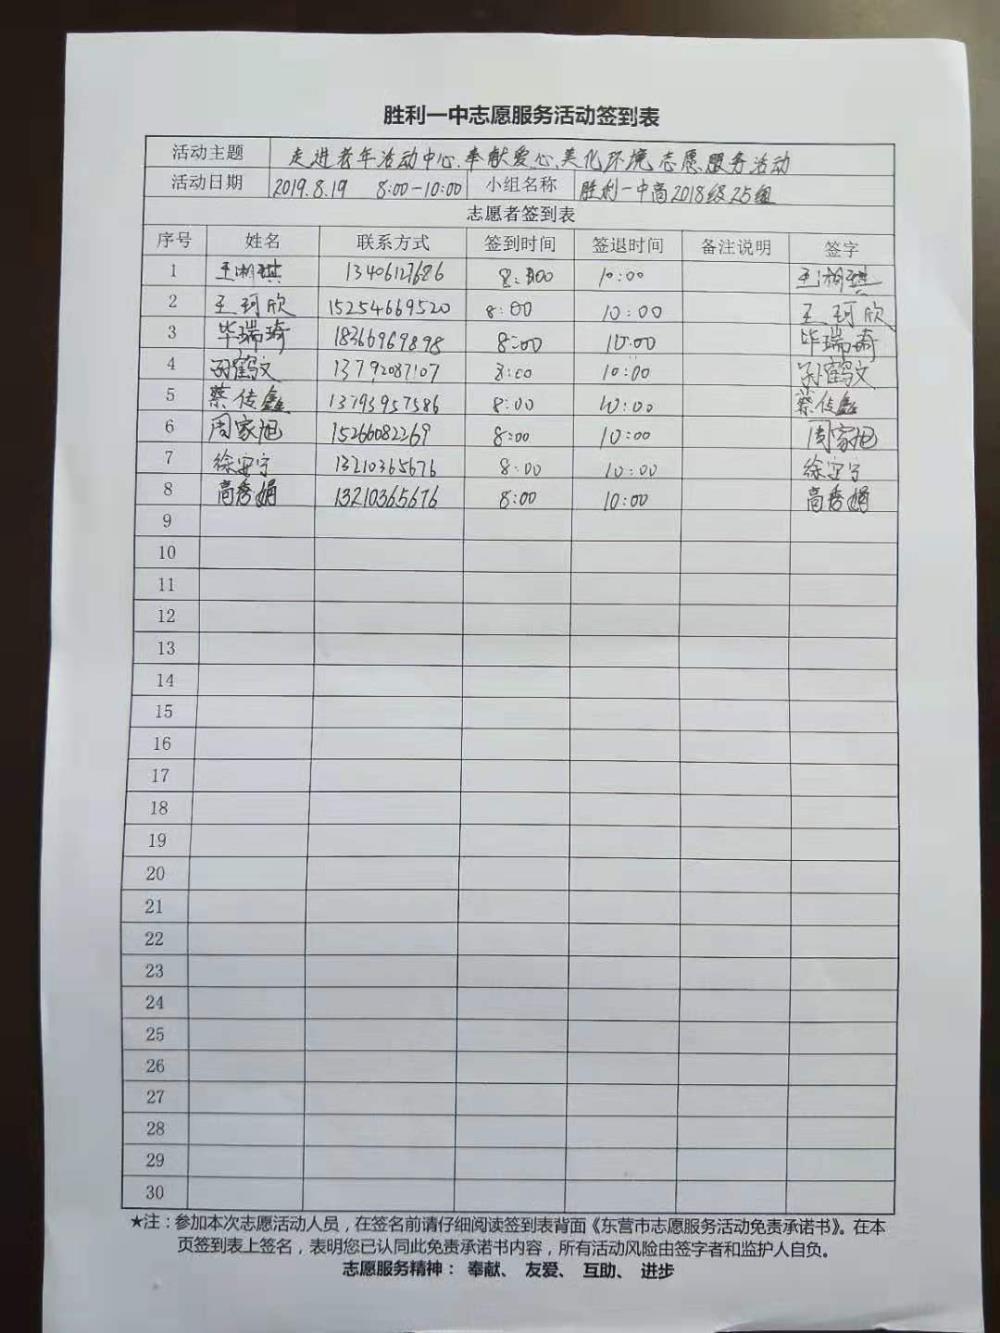 胜利一中志愿服务活动签到表
活动主题 走进老年活动中心.奉献爱心.美化环境志愿服务活动
活动日期 2019.8.19 8:00-10:00 小组名称 胜利一中高2018级25组
志愿者签到表
序号 姓名 联系方式 签到时间 签退时间 备注说明 签字
1 王湘琪 13406127686 8:00 10:00 王湘琪
2 王珂欣 15254669520 8:00 10:00 王珂欣
3 毕瑞琦 18366969898 8:00 10:00 毕瑞琦
4 孙鹤文 13792087107 8:00 10:00 孙鹤文
5 蔡传鑫 13793957586 8:00 10:00 蔡传鑫
6 周家旭 15266082269 8:00 10:00 周家旭
7 徐安宁 13210365676 8:00 10:00 徐安宁
8 高秀娟 13210365676 8:00 10:00 高秀娟
9
10
11
12
13
14
15
16
17
18
19
20
21
22
23
24
25
26
27
28
29
30
★注：参加本次志愿活动人员，在签名前请仔细阅读签到表背面《东营市志愿服务活动免责承诺书》。在本
页签到表上签名，表明您已认同此免责承诺书内容，所有活动风险由签字者和监护人自负。
志愿服务精神： 奉献、 友爱、 互助、 进步